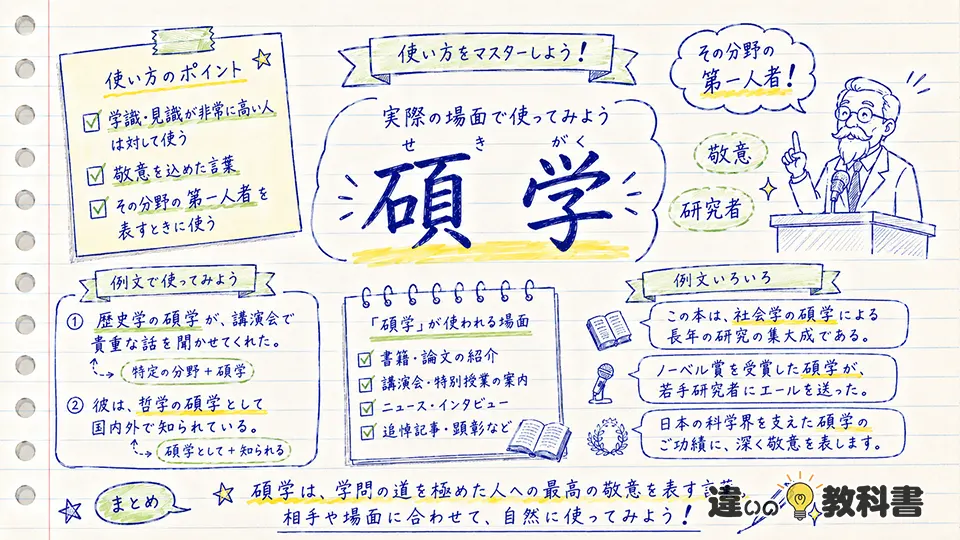 使い方をマスターしよう!
使い方のポイント
学識・見識が非常に高い人
は対して使う
敬意を込めた言葉
その分野の第一人者を
表すときに使う
実際の場面で使ってみよう
せき がく
碩学
その分野の
第一人者!
敬意
研究者
例文で使ってみよう
① 歴史学の碩学が、講演会で
貴重な話を聞かせてくれた。
特定の分野+碩学
② 彼は、哲学の碩学として
国内外で知られている。
碩学として+知られる
「碩学」が使われる場面
書籍・論文の紹介
講演会・特別授業の案内
ニュース・インタビュー
追悼記事・顕彰など
例文いろいろ
この本は、社会学の碩学による
長年の研究の集大成である。
ノーベル賞を受賞した碩学が、
若手研究者にエールを送った。
日本の科学界を支えた碩学の
ご功績に、深く敬意を表します。
まとめ
碩学は、学問の道を極めた人への最高の敬意を表す言葉。
相手や場面に合わせて、自然に使ってみよう!
違いの教科書